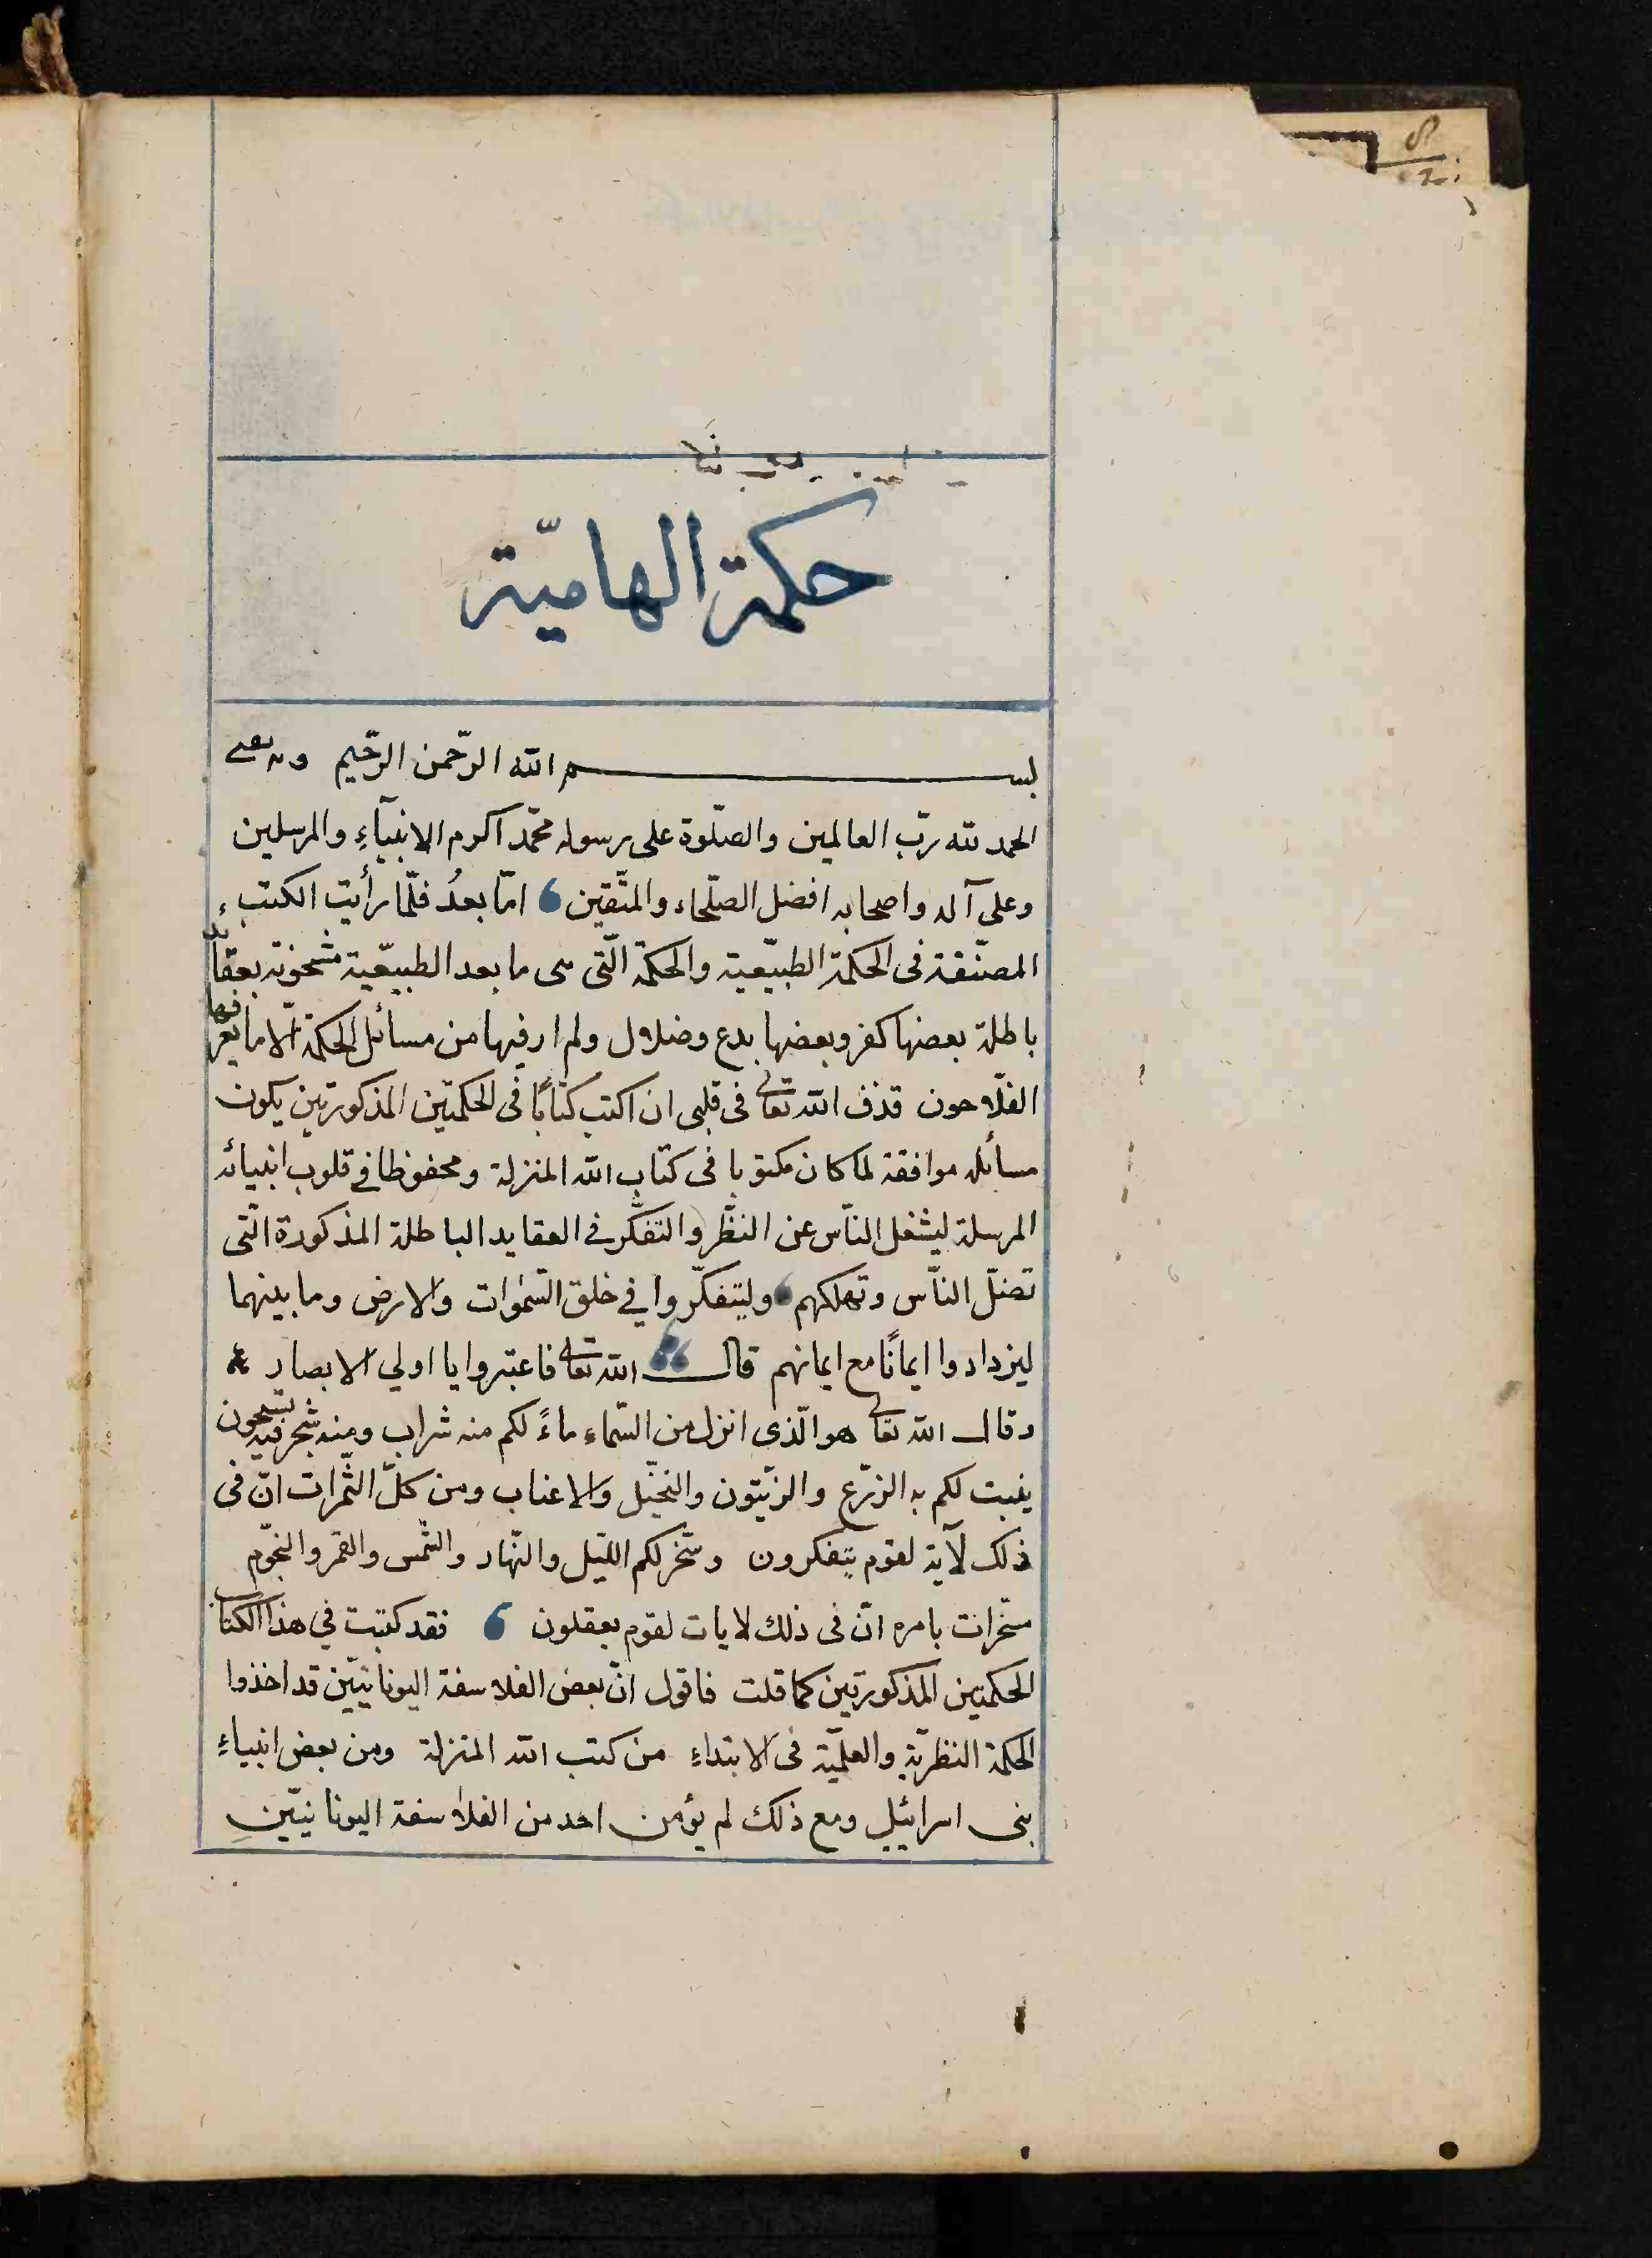 حكمة الهاميّة
بسم الله الرّحمن الرّحيم وبه نستعين
الحمد لله ربّ العالمين والصّلوة على رسوله محمّد اكرم الانبيآءِ والمرسلين
وعلى آله واصحابه افضل الصّلحاء والمتّقين امّا بعدُ فلمّا رأيت الكتب
المصنّفة فى الحكمة الطبيّعية والحكمة الّتى هى ما بعد الطبيّعية مشحونة بعقائد
باطلة بعضها كفر وبعضها بدع وضلال ولم ار فيها من مسائل الحكمة الّا ما يعرفها
الفلّاحون قذف الله تعالى فى قلبى ان اكتب كتابًا فى الحكمتين المذكورتين يكون
مسائله موافقة لما كان مكتوبا فى كتاب الله المنزلة ومحفوظا في قلوب انبيائه
المرسلة ليشغل النّاس عن النظّر والتفكّر في العقايد الباطلة المذكورة الّتى
تضلّ النّاس وتهلكهم وليتفكّروا في خلق السّموات والارض وما بينهما
ليزدادوا ايمانًا مع ايمانهم قال الله تعالى فاعتبروا يا اولي الابصار
وقال الله تعالى هو الّذى انزل من السّماء ماءً لكم منه شراب ومنه شجر فيه تسيمون
ينبت لكم به الزّرع والزّيتون والنخّيل والاعناب ومن كلّ الثّمرات انّ فى
ذلك لآية لقوم يتفكرون وسخّر لكم اللّيل والنّهار والشّمس والقمر والنجّوم
مسخّرات بامره انّ فى ذلك لايات لقوم يعقلون فقد كتبت في هذا الكتاب
الحكمتين المذكورتين كما قلت فاقول انّ بعض الفلاسفة اليونانيّين قد اخذوا
الحكمة النظريّة والعلميّة فى الابتداء من كتب الله المنزلة ومن بعض انبياءِ
بنى اسرائيل ومع ذلك لم يؤمن احد من الفلاسفة اليونانيّينِ